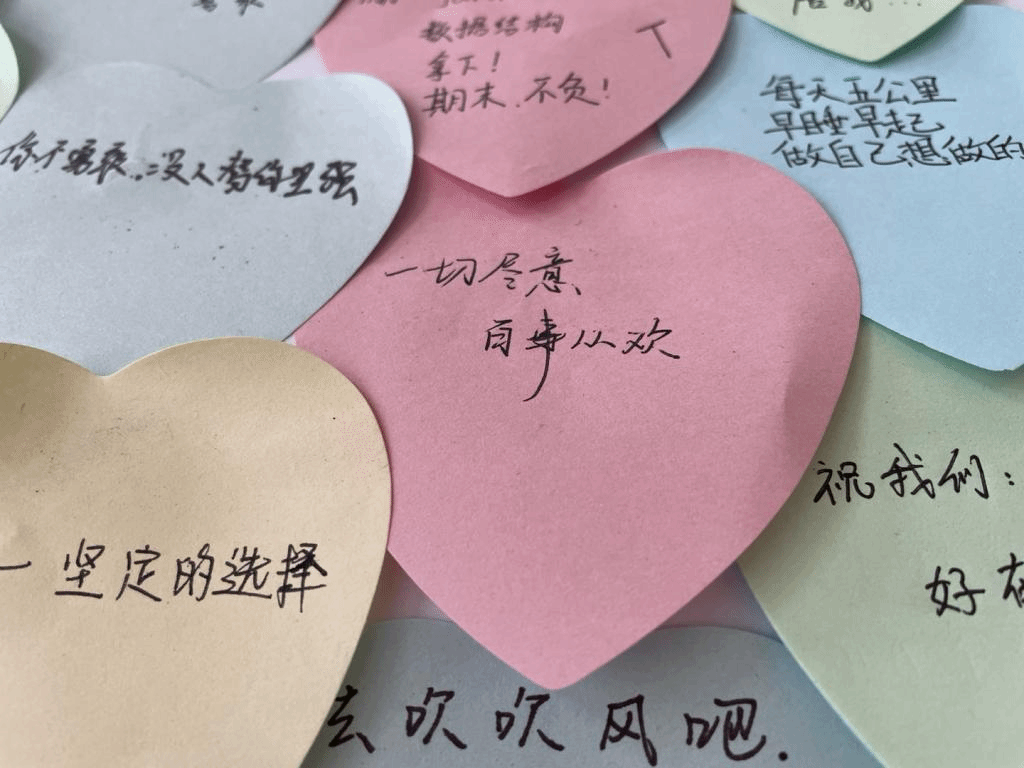 数据结构
拿下!
期末、不负!
每天五公里
早睡早起
做自己想做的
你不勇敢,没人替你坚强
一切尽意、
百事从欢
祝我们:
好在
一坚定的选择
去吹吹风吧.